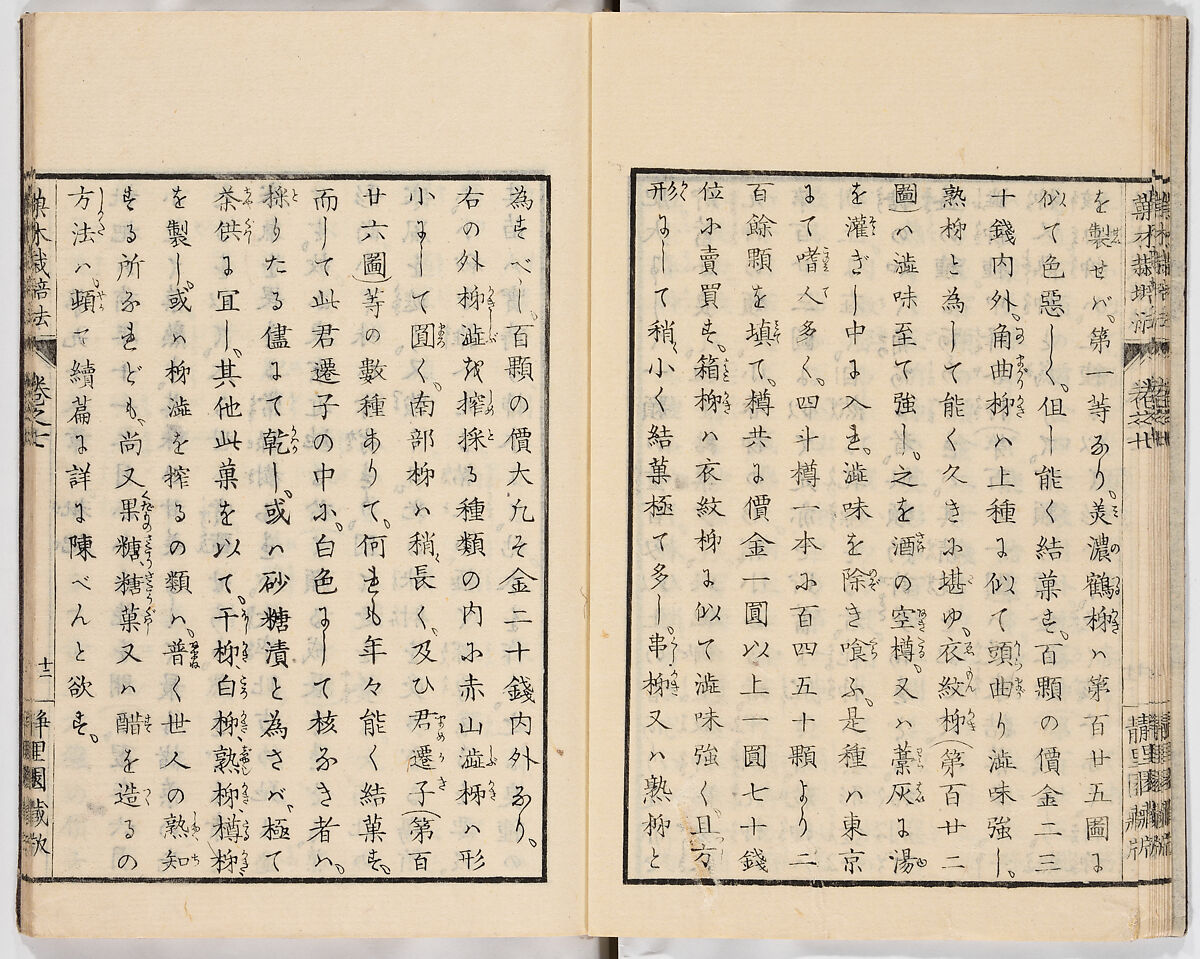 を製せバ、第一等なり、美濃鶴柹ハ第百廿五圖に
似て色惡しく、但し能く結菓す、百顆の價金二三
十錢内外、角曲柹ハ上種に似て頭曲り澁味強し、
熟柹と為して能く久きに堪ゆ、衣紋柹(第百廿二
圖)ハ澁味至て強し、之を酒の空樽、又ハ藁灰に湯
を灌ぎし中に入れ、澁味を除き喰ふ、是種ハ東京
にて嗜人多く、四斗樽一本に百四五十顆より二
百餘顆を填て、樽共に價金一圓以上一圓七十錢
位に賣買す、箱柹ハ衣紋柹に似て澁味強く、且方
形にして稍小く結菓極て多し、串柹又ハ熟柹と
為すべし、百顆の價大凡そ金二十錢内外なり、
右の外柹澁を搾採る種類の内に赤山澁柹ハ形
小にして圓く、南部柹ハ稍長く、及ひ君遷子(第百
廿六圖)等の數種ありて、何れも年々能く結菓す、
而して此君遷子の中に、白色にして核なき者ハ、
採りたる儘にて乾し、或ハ砂糖漬と為さバ、極て
茶供に宜し、其他此菓を以て、干柹、白柹、熟柹、樽柹
を製し、或ハ柹澁を搾るの類ハ、普く世人の熟知
する所なれども、尚又果糖、糖菓又ハ醋を造るの
方法ハ、頓て續篇に詳に陳べんと欲す、
菓木栽培法
卷之七
十二
静里園藏版